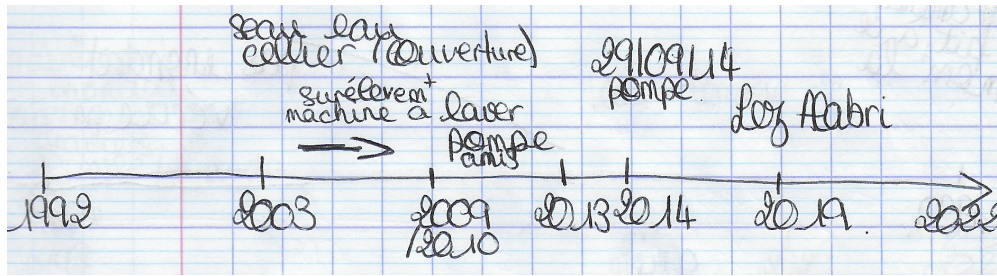 seau eau
cellier (Ouverture)
surélevemt
machine à laver
pompe
amis
29/09/14
pompe
Loz Alabri
1992
2003
2009
/2010
2013
2014
2019
2022